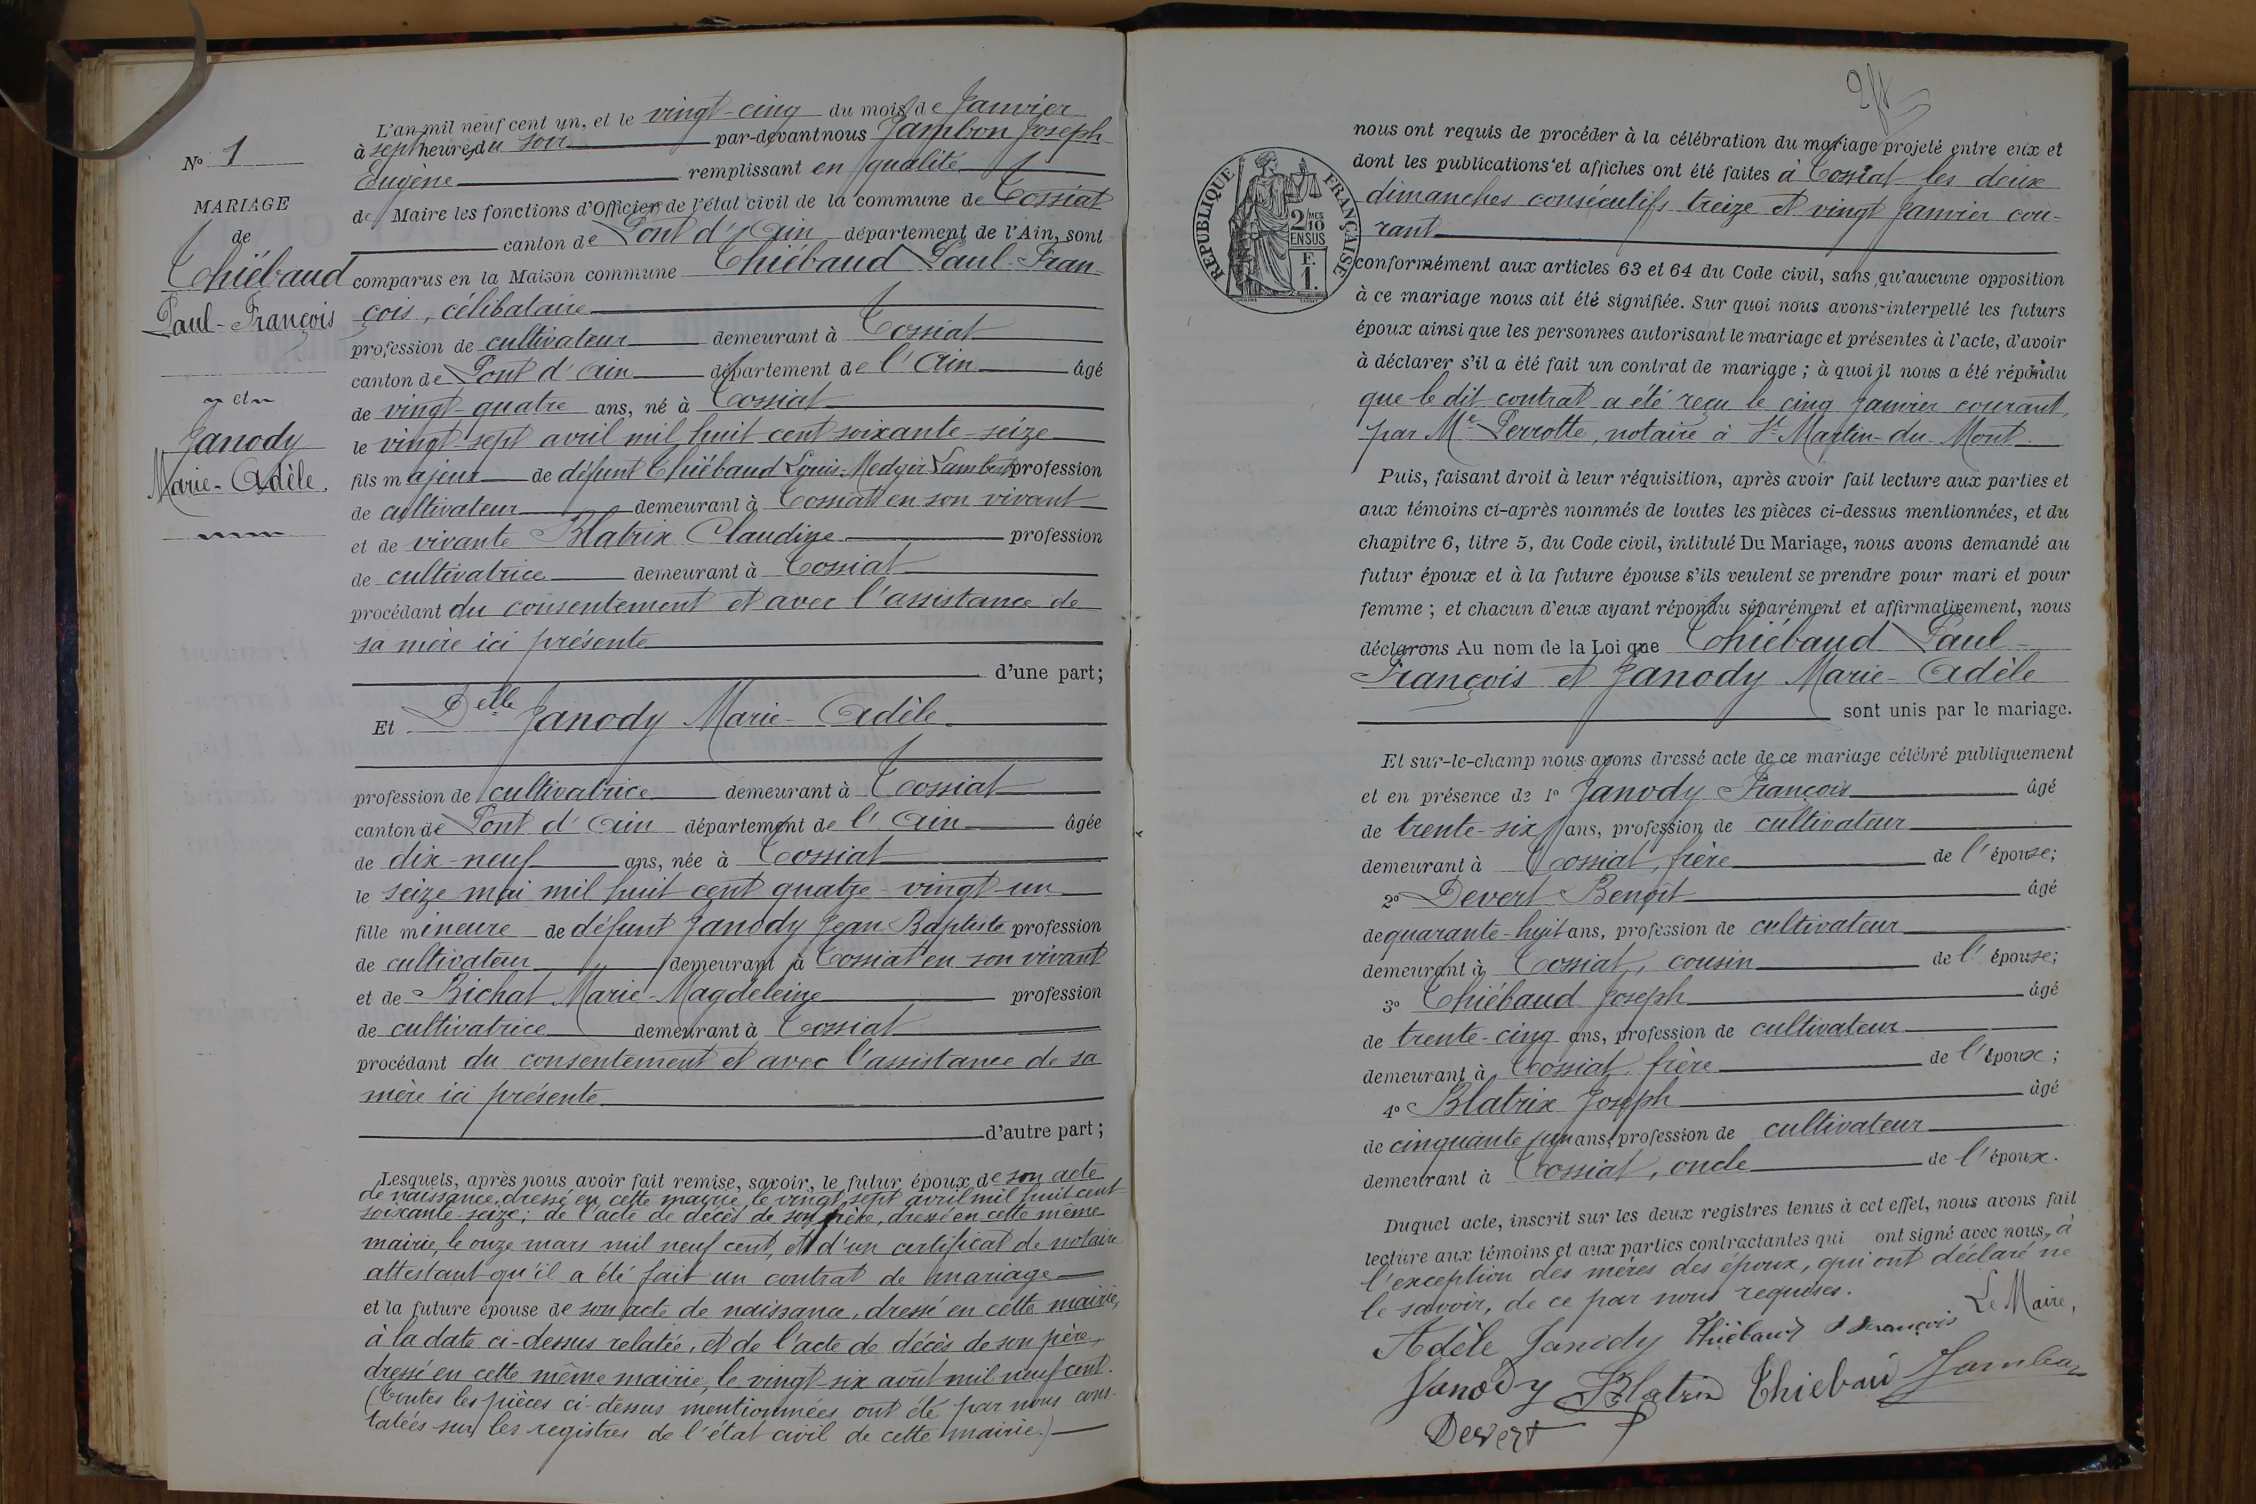 N° 1
MARIAGE
de
Thiébaud
Paul-François
et
Janody
Marie-Adèle.
L'an mil neuf cent un, et le vingt-cinq du mois de Janvier
à sept heures du soir par-devant nous Jambon Joseph
Eugène remplissant en qualité
de Maire les fonctions d'Officier de l'état civil de la commune de Tossiat
canton de Pont d'Ain département de l'Ain, sont
comparus en la Maison commune Thiébaud Paul-Fran-
çois, célibataire
profession de cultivateur demeurant à Tossiat
canton de Pont d'Ain département de l'Ain âgé
de vingt-quatre ans, né à Tossiat
le vingt-sept avril mil huit cent soixante-seize
fils majeur de défunt Thiébaud Louis-Medgir Lambert profession
de cultivateur demeurant à Tossiat en son vivant
et de vivante Blatrix Claudine profession
de cultivatrice demeurant à Tossiat
procédant du consentement et avec l'assistance de
sa mère ici présente
d'une part;
Et Delle Janody Marie-Adèle
profession de cultivatrice demeurant à Tossiat
canton de Pont d'Ain département de l'Ain âgée
de dix-neuf ans, née à Tossiat
le seize mai mil huit cent quatre-vingt-un
fille mineure de défunt Janody Jean Baptiste profession
de cultivateur demeurant à Tossiat en son vivant
et de Bichat Marie-Magdeleine profession
de cultivatrice demeurant à Tossiat
procédant du consentement et avec l'assistance de sa
mère ici présente
d'autre part;
Lesquels, après nous avoir fait remise, savoir, le futur époux de son acte
de naissance, dressé en cette mairie, le vingt-sept avril mil huit cent
soixante-seize; de l'acte de décès de son père, dressé en cette même
mairie, le onze mars mil neuf cent, et d'un certificat de notaire
attestant qu'il a été fait un contrat de mariage
et la future épouse de son acte de naissance, dressé en cette mairie,
à la date ci-dessus relatée, et de l'acte de décès de son père,
dressé en cette même mairie, le vingt-six août mil neuf cent.
(Toutes les pièces ci-dessus mentionnées ont été par nous cons-
tatées sur les registres de l'état civil de cette mairie.)
RÉPUBLIQUE FRANÇAISE
2/10 MES
EN SUS
F.
1.
nous ont requis de procéder à la célébration du mariage projeté entre eux et
dont les publications et affiches ont été faites à Tossiat les deux
dimanches consécutifs treize et vingt Janvier cou-
rant
conformément aux articles 63 et 64 du Code civil, sans qu'aucune opposition
à ce mariage nous ait été signifiée. Sur quoi nous avons interpellé les futurs
époux ainsi que les personnes autorisant le mariage et présentes à l'acte, d'avoir
à déclarer s'il a été fait un contrat de mariage; à quoi il nous a été répondu
que le dit contrat a été reçu le cinq Janvier courant,
par Me Perrotte, notaire à St Martin-du-Mont
Puis, faisant droit à leur réquisition, après avoir fait lecture aux parties et
aux témoins ci-après nommés de toutes les pièces ci-dessus mentionnées, et du
chapitre 6, titre 5, du Code civil, intitulé Du Mariage, nous avons demandé au
futur époux et à la future épouse s'ils veulent se prendre pour mari et pour
femme; et chacun d'eux ayant répondu séparément et affirmativement, nous
déclarons Au nom de la Loi que Thiébaud Paul-
François et Janody Marie-Adèle
sont unis par le mariage.
Et sur-le-champ nous avons dressé acte de ce mariage célébré publiquement
et en présence de 1° Janody François âgé
de trente-six ans, profession de cultivateur
demeurant à Tossiat, frère de l'épouse;
2° Devert Benoit âgé
de quarante-huit ans, profession de cultivateur
demeurant à Tossiat, cousin de l'épouse;
3° Thiébaud Joseph âgé
de trente-cinq ans, profession de cultivateur
demeurant à Tossiat, frère de l'époux;
4° Blatrix Joseph âgé
de cinquante un ans, profession de cultivateur
demeurant à Tossiat, oncle de l'époux.
Duquel acte, inscrit sur les deux registres tenus à cet effet, nous avons fait
lecture aux témoins et aux parties contractantes qui ont signé avec nous, à
l'exception des mères des époux, qui ont déclaré ne
le savoir, de ce par nous requises.
Le Maire,
Adèle Janody Thiébaud François
Janody Blatrix Thiebaud Jambon
Devert